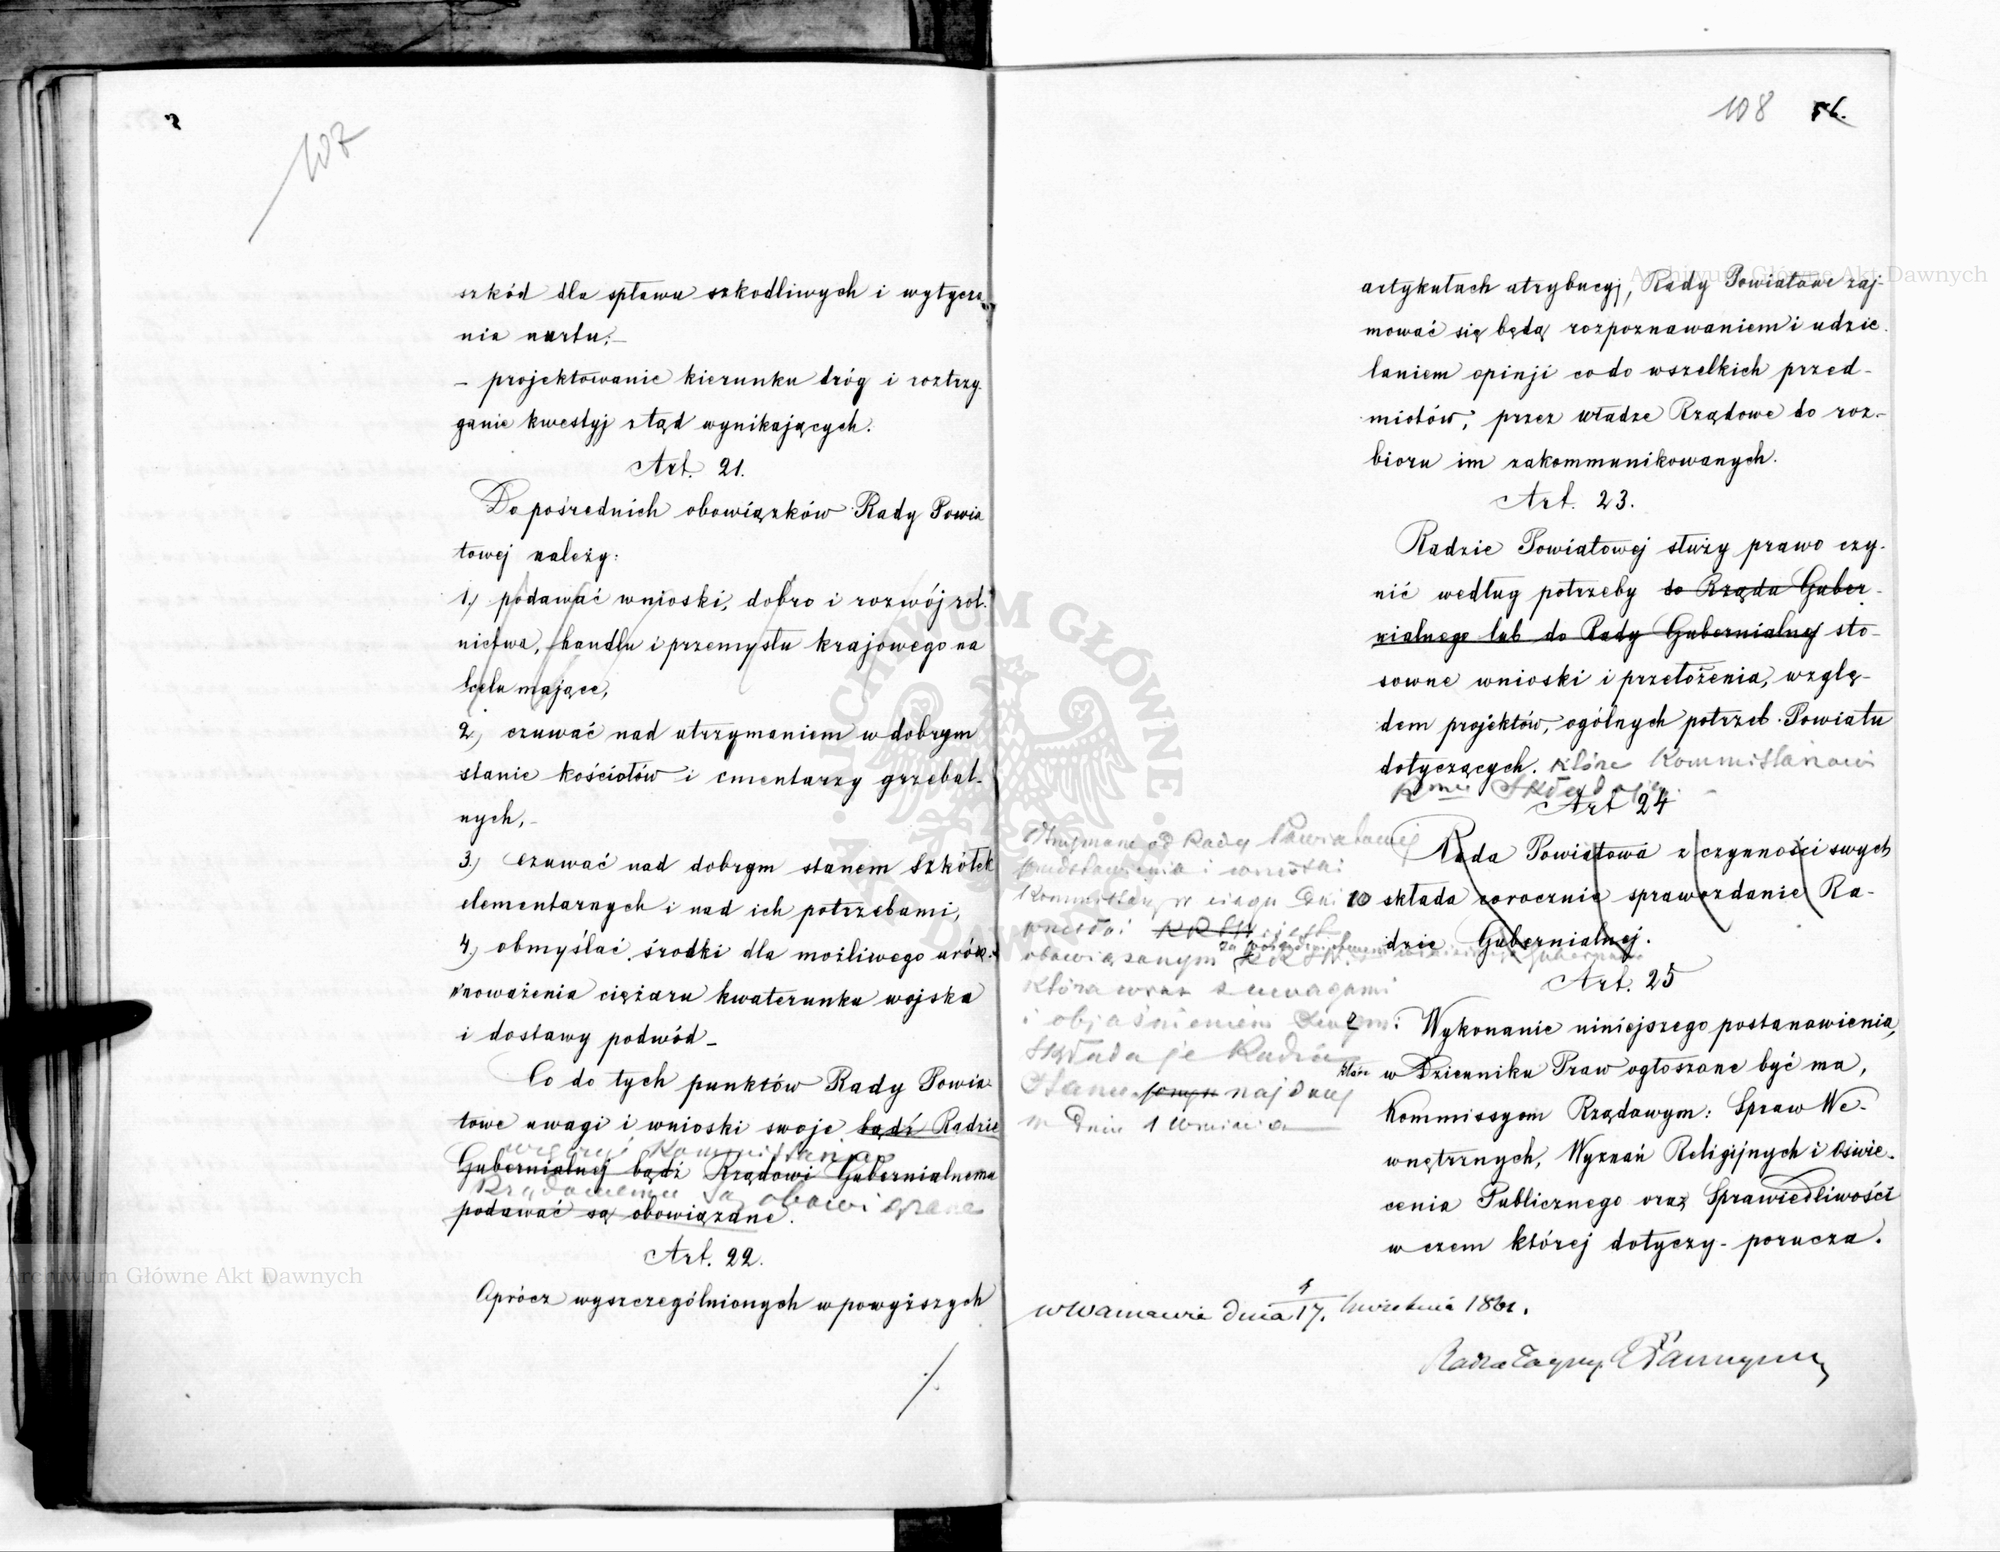 107
szkód dla spławu szkodliwych i wytycza
nie nurtu.–
– projektowanie kierunku dróg i roztrzy
ganie kwestyj ztąd wynikających.
Art. 21.
Do pośrednich obowiązków Rady Powia
towej należy:
1.) podawać wnioski, dobro i rozwój rol.
nictwa, handlu i przemysłu krajowego na
celu mające,
2.) czuwać nad utrzymaniem w dobrym
stanie kościołów i cmentarzy grzebal.
nych,–
3.) czuwać nad dobrym stanem szkółek
elementarnych i nad ich potrzebami,
4.) obmyślać środki dla możliwego urów.
noważenia ciężaru kwaterunku wojska
i dostawy podwód –
Co do tych punktów Rady Powia
towe uwagi i wnioski swoje bądź Radzie
Kommissarza
Gubernialnej bądź Rządowi Gubernialnemu
Rządowemu są obowiązane
podawać są obowiązane.
Art. 22.
Oprócz wyszczególnionych w powyższych
./.
108 56.
artykułach atrybucyj, Rady Powiatowe zaj-
mować się będą rozpoznawaniem i udzie.
laniem opinji co do wszelkich przed-
miotów, przez władze Rządowe do roz-
bioru im zakommunikowanych.
Art. 23.
Radzie Powiatowej służy prawo czy-
nić według potrzeby do Rządu Guber-
nialnego lub do Rady Gubernialnej sto-
sowne wnioski i przełożenia, wzglę-
dem projektów, ogólnych potrzeb Powiatu
dotyczących. które Kommissarzowi
składają.
Art 24
Rada Powiatowa z czynności swych
składa corocznie sprawozdanie Ra-
dzie Gubernialnej.
Otrzymane od Rady Powiatowej
przedstawienia i wnioski
Kommissarz w ciągu dni 10
wnieść jest
obowiązanym
która wraz z uwagami
i objaśnieniem swojem
składa je Radzie
Stanu najdalej
w dniu 1 Września
Art. 25
Wykonanie niniejszego postanowienia,
które w Dzienniku Praw ogłoszone być ma,
Kommissyom Rządowym: Spraw We-
wnętrznych, Wyznań Religijnych i Oświe-
cenia Publicznego oraz Sprawiedliwości
w czem której dotyczy – porucza.
w Warszawie dnia 5/17. kwietnia 1861.
Radca Tajny
Archiwum Główne Akt Dawnych
Archiwum Główne Akt Dawnych
ARCHIWUM GŁÓWNE AKT DAWNYCH